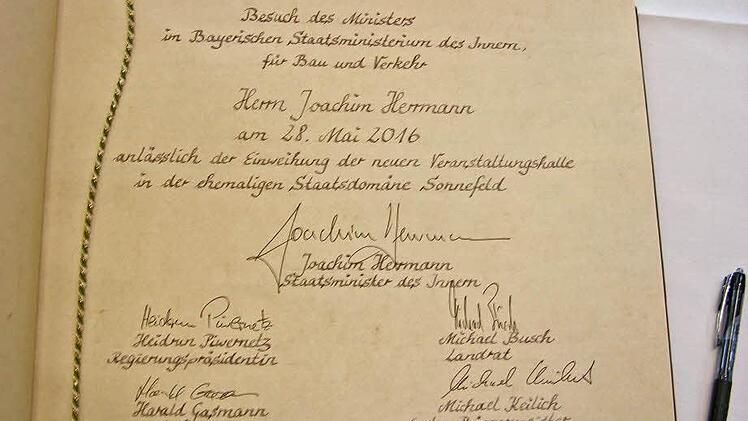 Besuch des Ministers
im Bayerischen Staatsministerium des Innern,
für Bau und Verkehr
Herrn Joachim Herrmann
am 28. Mai 2016
anlässlich der Einweihung der neuen Veranstaltungshalle
in der ehemaligen Staatsdomäne Sonnefeld
Joachim Herrmann
Joachim Herrmann
Staatsminister des Innern
Heidrun Piwernetz
Heidrun Piwernetz
Regierungspräsidentin
Michael Busch
Michael Busch
Landrat
Harald Gaßmann
Michael Keilich